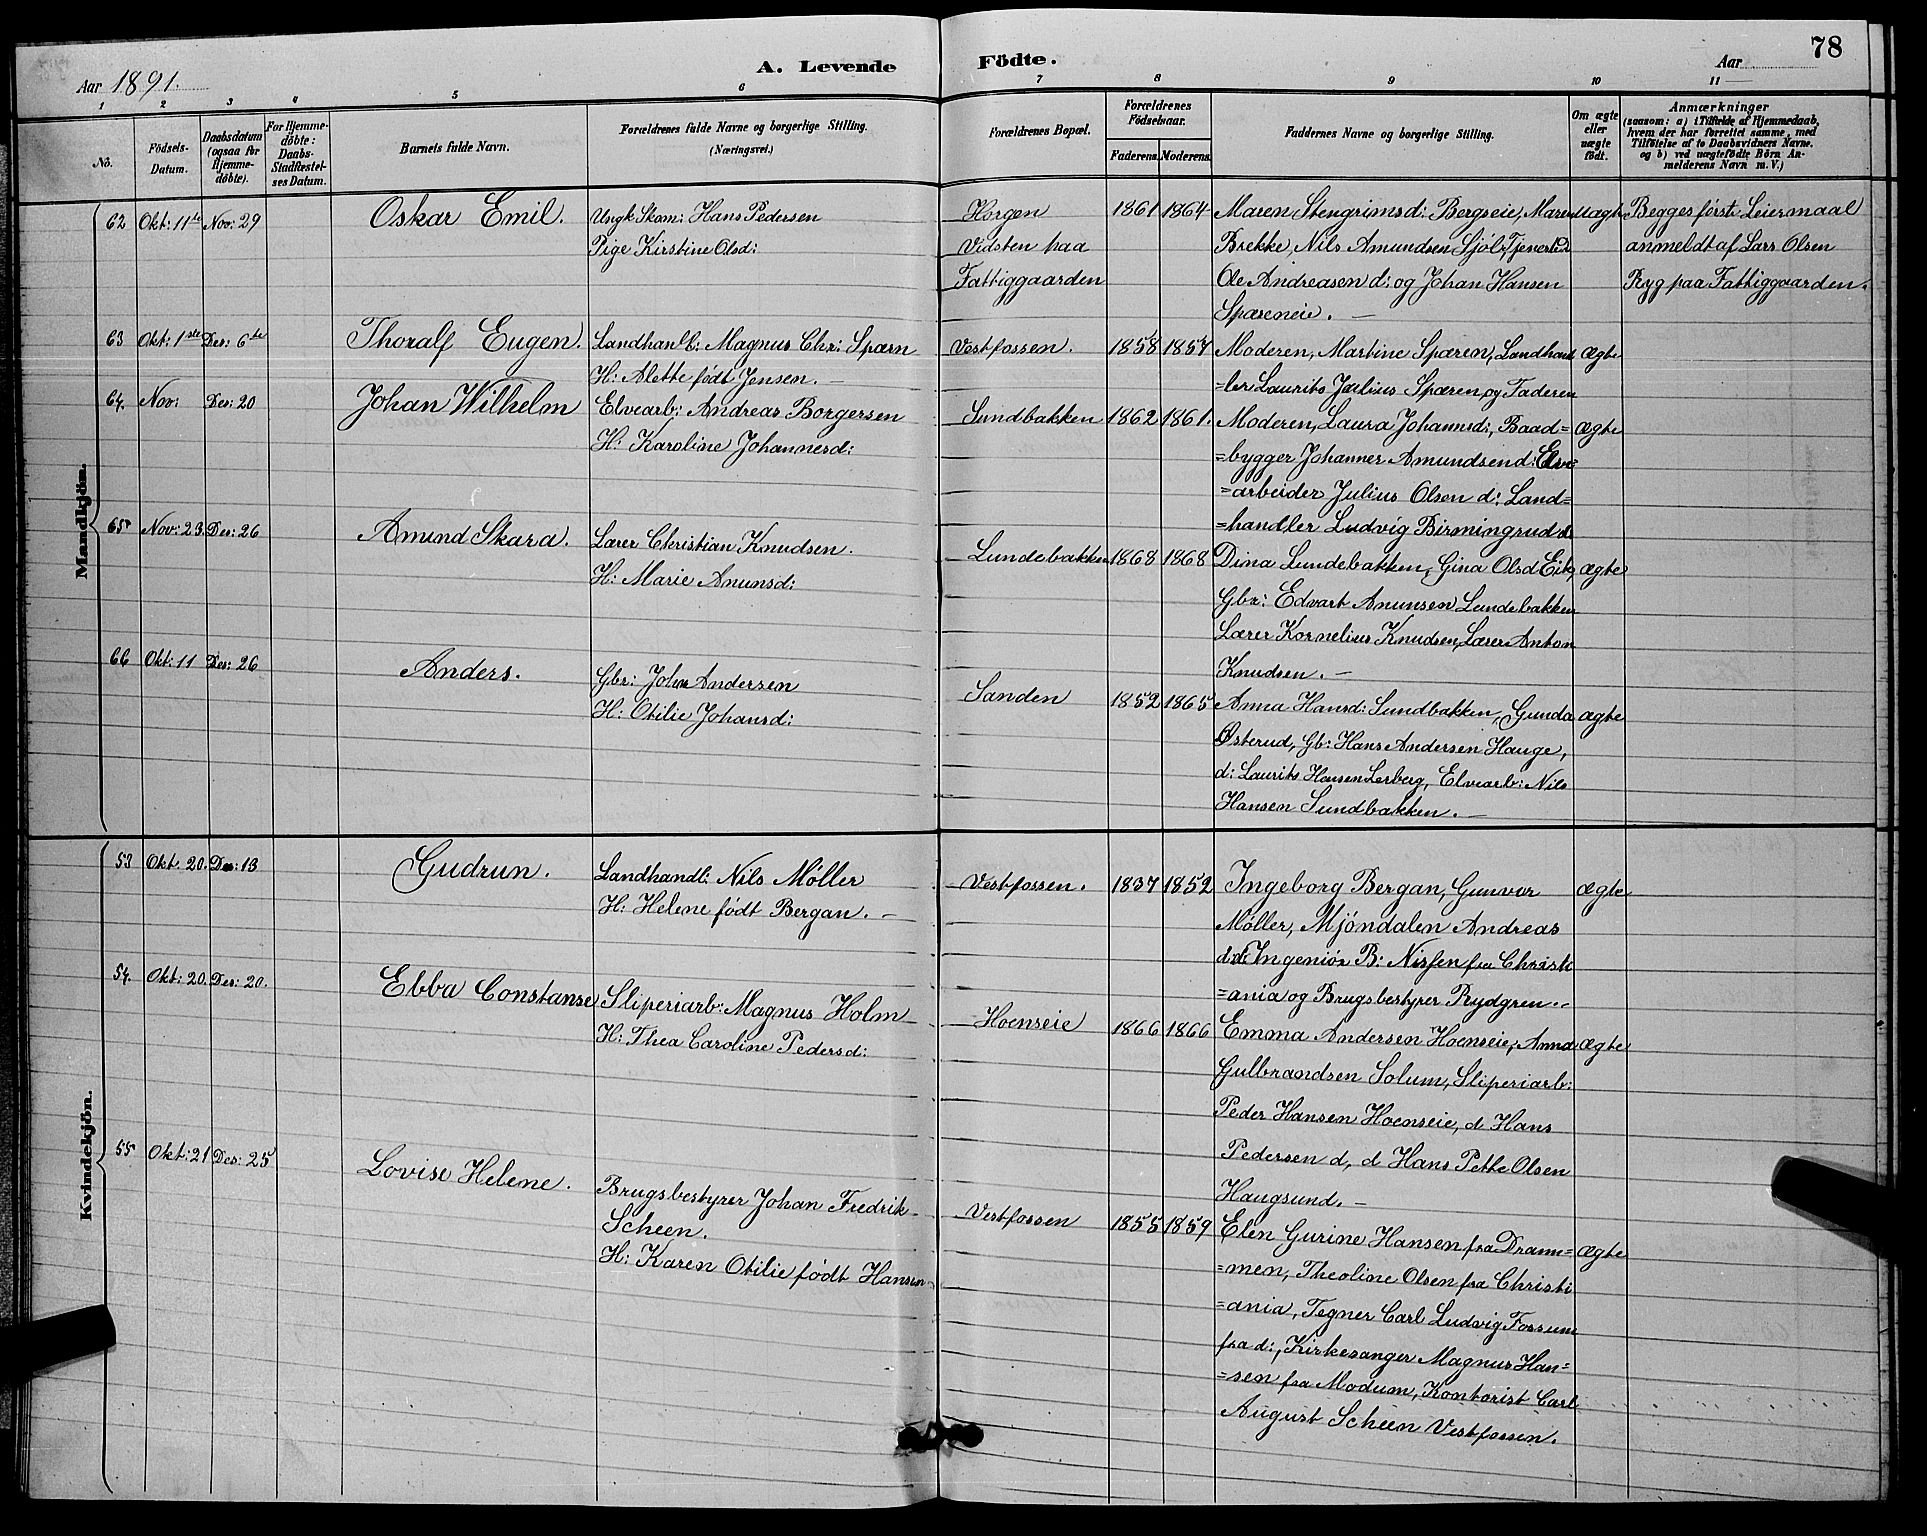 78
Aar 1891.
A. Levende Födte.
Aar
1 2 3 4 5 6 7 8 9 10 11
No.
Födsels-Datum.
Daabsdatum (ogsaa for Hjemmedöbte).
For Hjemmedöbte: Daabs-Stadfæstelses Datum.
Barnets fulde Navn.
Forældrenes fulde Navne og borgerlige Stilling.
(Næringsvei.)
Forældrenes Bopæl.
Forældrenes Födselsaar.
Faderens. Moderens.
Faddernes Navne og borgerlige Stilling.
Om ægte eller uægte födt.
Anmærkninger
(saasom: a) i Tilfælde af Hjemmedaab,
hvem der har forrettet samme, med
Tilföielse af to Daabsvidners Navne,
og b) ved uægtefödte Börn An-
melderens Navn m. V.)
Mandkjön.
62 Okt: 11te Nov: 29 Oskar Emil. Ungk Skom: Hans Pedersen Horgen 1861 1864 Maren Stengrimsd: Bergseie, Maren uægte Begges förste Leiermaal
Pige Kirstine Olsd: Vidsten paa Brekke, Nils Amundsen Sjöl, anmeldt af Lars Olsen
Fattiggaarden Ole Andreasen d: og Johan Hansen Ryg paa Fattiggaarden.
Spæreneie. —
63 Okt: 1ste Des: 6te Thoralf Eugen. Landhandl: Magnus Chr: Spærn Vestfossen. 1858 1857 Moderen, Martine Spæren, Landhand ægte
H: Alette født Jensen. — =ler Laurits Julius Spæren og Faderen
64. Nov: Des: 20 Johan Wilhelm Elvearb: Andreas Borgersen Sundbakken 1862 1861. Moderen, Laura Johannsd:, Baad= ægte
H: Karoline Johannesd: =bygger Johannes Amundsen d: Elve=
=arbeider Julius Olsen d: Land=
=handler Ludvig Birmingrud d:
65 Nov: 23. Des: 26 Amund Skara. Lærer Christian Knudsen. Lundebakken 1868 1868 Dina Lundebakken, Gina Olsd Eik, ægte
H: Marie Anunsd: Gbr: Edvart Anunsen Lundebakken
Lærer Kornelius Knudsen, Lærer Anton
Knudsen. —
66 Okt: 11 Des: 26 Anders. Gbr: Johan Andersen Sanden 1852 1865 Anna Hansd: Sundbakken, Gunda ægte
H: Otilie Johansd: Østerud, Gb: Hans Andersen Hauge,
d: Laurits Hansen Lerberg, Elvearb: Nils
Hansen Sundbakken. —
Kvindekjön.
53 Okt. 20. Des: 13 Gudrun. Landhandl: Nils Møller Vestfossen. 1837 1852 Ingeborg Bergan, Gunvor ægte
H: Helene født Bergan. — Møller, Mjöndalen Andreas
d: d: Ingeniør B: Nissen fra Christi
=ania og Brugsbestyrer Rydgren. —
54. Okt: 20. Des: 20. Ebba Constanse Sliperiarb: Magnus Holm Hoenseie 1866 1866 Emma Andersen Hoenseie, Anna ægte
H: Thea Caroline Pedersd: Gulbrandsen Solum, Sliperiarb:
Peder Hansen Hoenseie, d Hans
Pedersen d, d Hans Pette Olsen
Haugsund. —
55 Okt: 21 Des: 25 Lovise Helene. Brugsbestyrer Johan Fredrik Vestfossen 1855 1859 Elen Gurine Hansen fra Dram= ægte
Scheen. =men, Theoline Olsen fra Christi
H: Karen Otilie født Hansen =ania, Tegner Carl Ludvig Fossum
fra d:, Kirkesanger Magnus Han=
=sen fra Modum, Kontorist Carl
August Scheen Vestfossen.